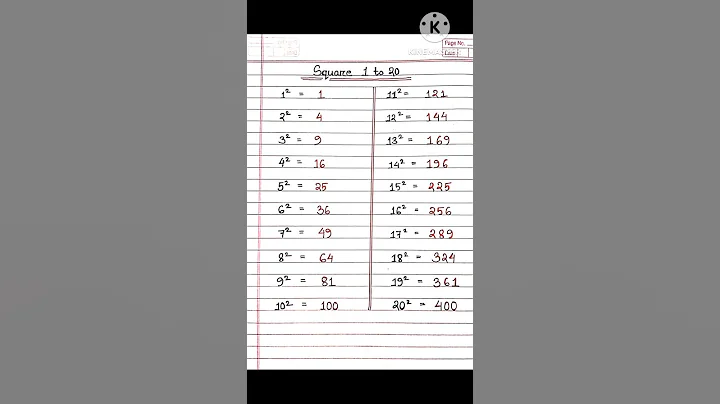 K
Page No.
Date
Square 1 to 20
1² = 1
2² = 4
3² = 9
4² = 16
5² = 25
6² = 36
7² = 49
8² = 64
9² = 81
10² = 100
11² = 121
12² = 144
13² = 169
14² = 196
15² = 225
16² = 256
17² = 289
18² = 324
19² = 361
20² = 400